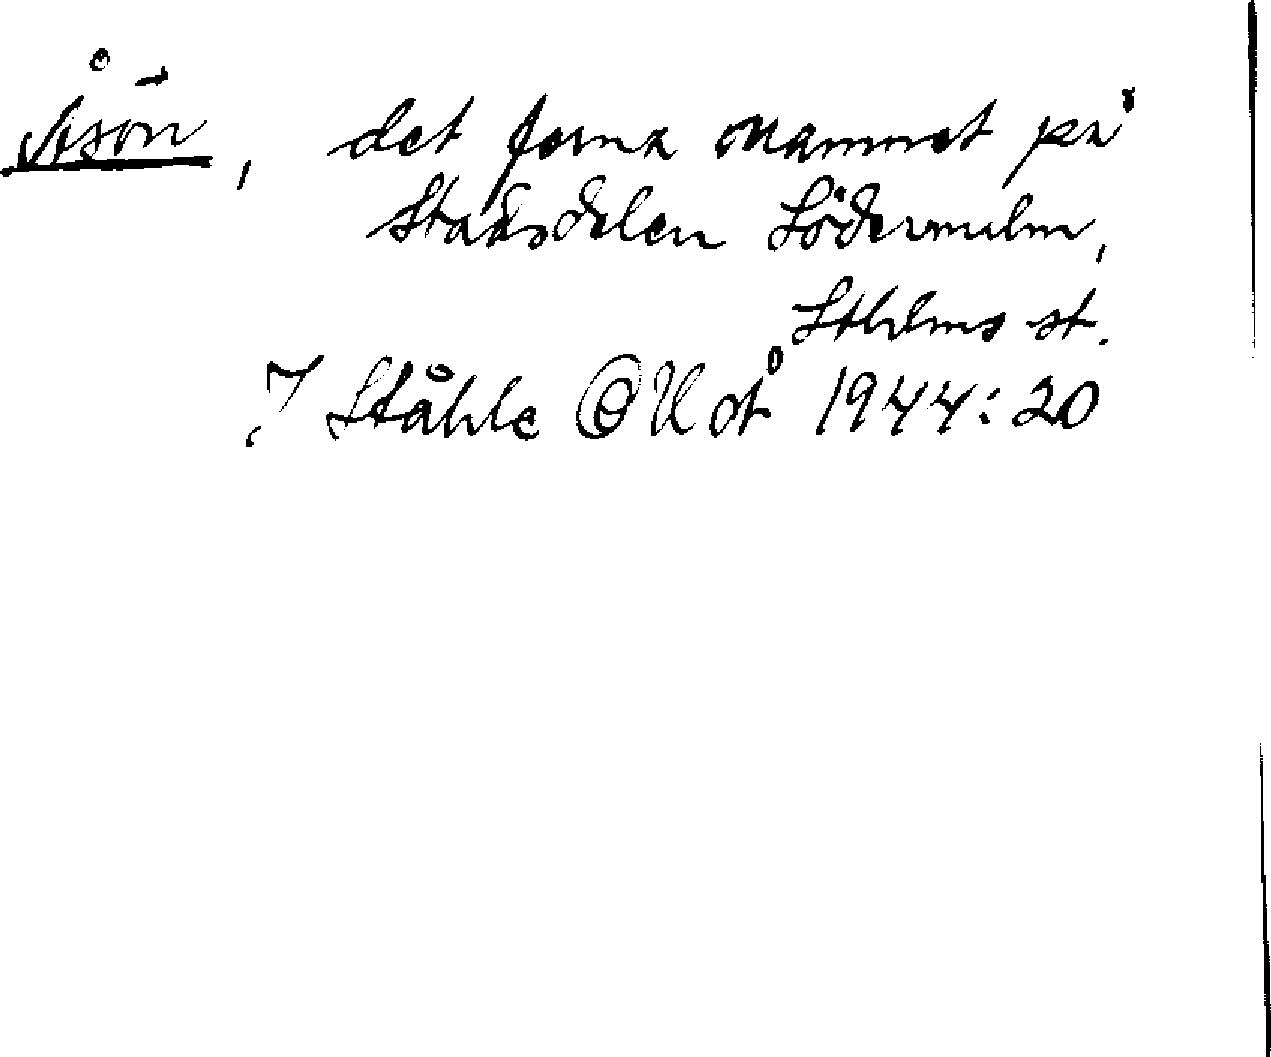 Åsön, det forna namnet på
stadsdelen Södermalm,
Sthlms st.
J Ståhle OUÅ 1944:20